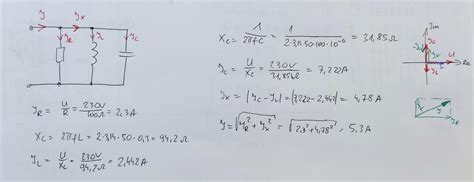 I Ix
IR IL IC
IR = U/R = 230V/100Ω = 2,3A
XL = 2πfL = 2·3,14·50·0,3 = 94,2Ω
IL = U/XL = 230V/94,2Ω = 2,442A
XC = 1/2πfC = 1/2·3,14·50·100·10⁻⁶ = 31,85Ω
IC = U/XC = 230V/31,85Ω = 7,222A
Ix = |IC - IL| = |7,222 - 2,442| = 4,78A
I = √IR² + Ix² = √2,3² + 4,78² = 5,3A
Im
IC U
Re
IL
Ix I
IR